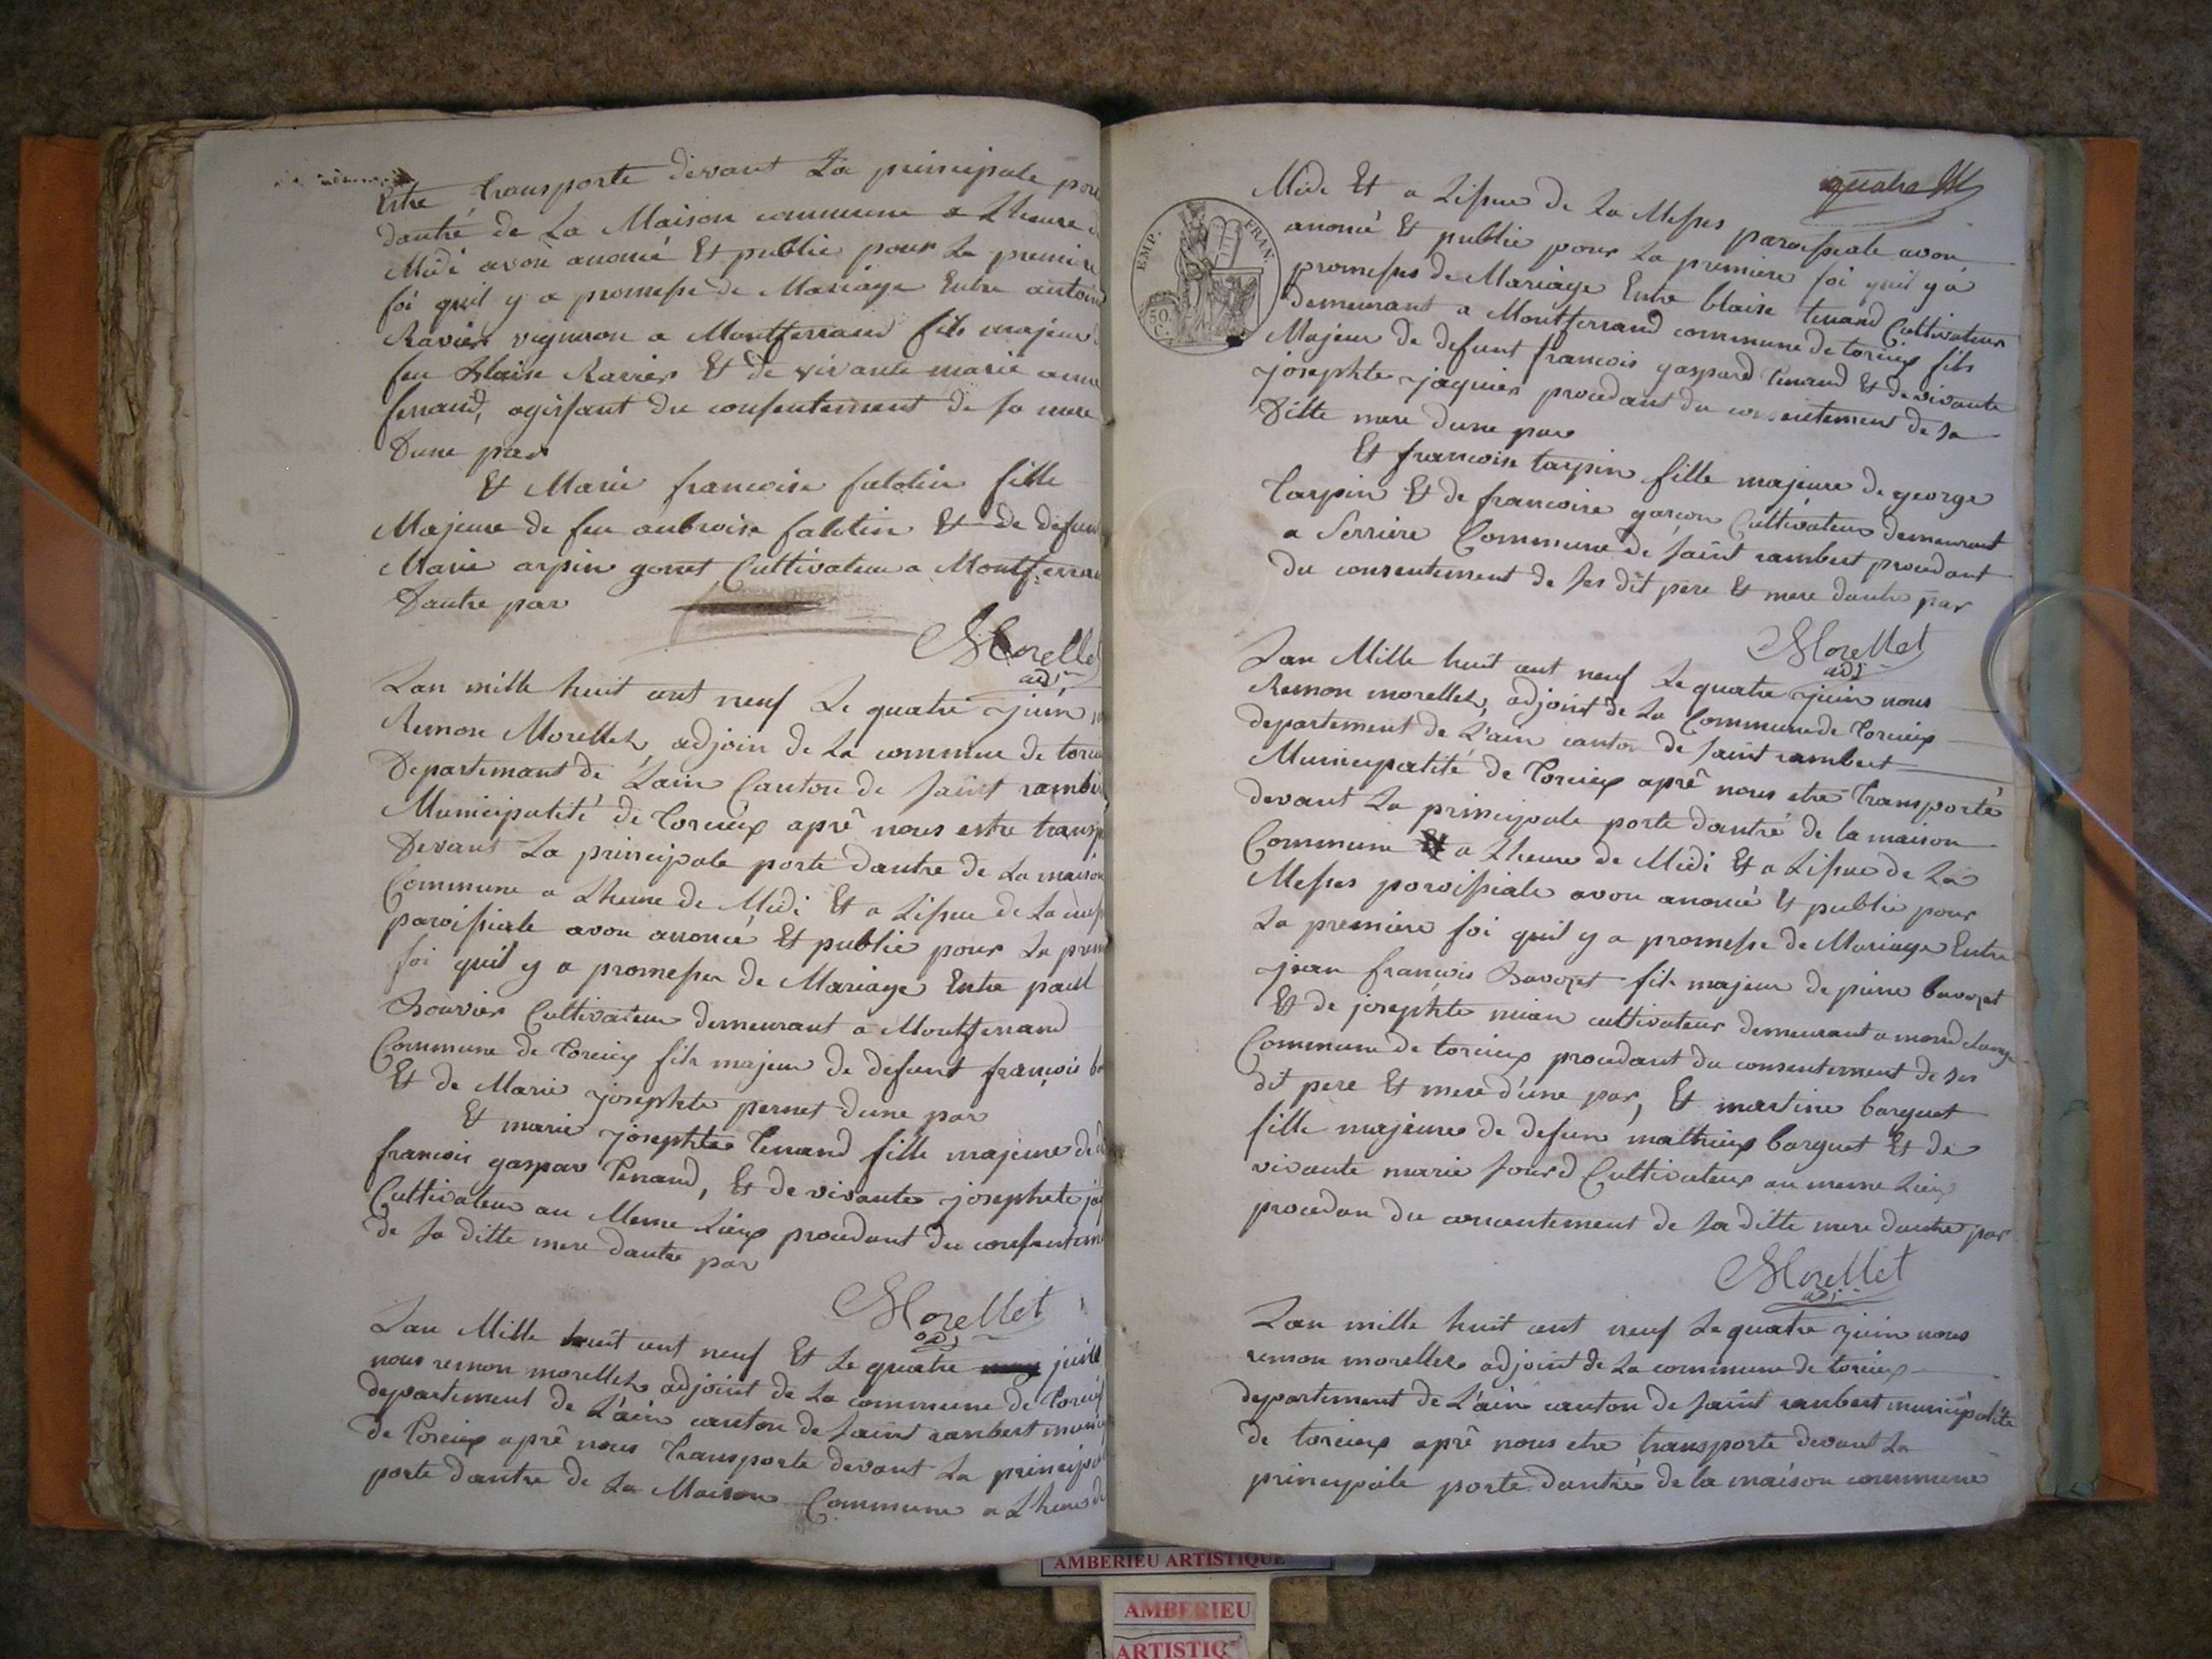 Estre transporte devant La principale por
dantré de La Maison commune a Lheure d
Midi avon anoncé Et publié pour La premire
foi quil y a promesse de Mariage Entre antoin
Ravier vigneron a Montferrand fils majeur
feu Blaise Ravier Et de vivante marie anne
ferrand, agissant du consentement de sa mere
Dune par
Et Marie francoise falotin fille
Majeure de feu aubroise falotin Et de defun
Marie arpin gonet Cultivateur a Montferran
Dautre par
Morellet
adj
Lan mille huit cent neuf Le quatre juin
Remon Morellet, adjoin de La commune de torcieu
Departemant de Lain Canton de saint rambe
Municipalité de Torcieux aprê nous estre transp
Devant La principale porte dantre de La maison
Commune a Lheure de Midi Et a Lissue de La mess
paroissiale avon anoncé Et publié pour La prem
foi quil y a promesse de Mariage Entre paul
Bouvier Cultivateur demeurant a Montferrand
Commune de Torcieux fils majeur de defunt françois bo
Et de Marie josephte pernet dune par
Et marie josephte Tenand fille majeure de d
francois gaspar Tenand, Et de vivante josephte ja
Cultivateur au Meme Lieux procedant du consenteme
de sa ditte mere dautre par
Morellet
adj
Lan Mille huit cent neuf Et Le quatre juin
nous remon morellet adjoint de La commune de Torcieux
departement de L'ain canton de saint rambert munic
de Torcieux aprê nous Transporte devant La principal
porte dantre de La Maison Commune a Lheure de
quatre
EMP. FRAN.
50
C.
Midi Et a Lissue de La Messes paroissiale avon
anoncé Et publie pour La premiere foi quil y a
promesses de Mariage Entre blaise tenand Cultivateur
demeurant a Montferrand commune de torcieux fils
Majeur de defunt francois gaspard tenand Et de vivante
josephte jaquier procedant du consentement de sa
Ditte mere dune par
Et francoise tarpin fille majeure de george
Tarpin Et de francoise garçon Cultivateur demeurant
a Serriere Commune de saint rambert procedant
du consentement de ses dit pere Et mere dautre par
Morellet
adj
Lan Mille huit cent neuf Le quatre juin nous
Remon morellet, adjoint de La Commune de Torcieux
departement de L'ain canton de saint rambert
Municipalité de Torcieux aprê nous etre Transporté
devant La principale porte dantré de la maison
Commune a Lheure de Midi Et a Lissue de La
Messes paroissiale avon anoncé Et publie pour
La premiere foi quil y a promesse de Mariage Entre
jean françois Bavozet fils majeur de pierre bavozet
Et de josephte cultivateur demeurant a
Commune de torcieux procedant du consentement de ses
dit pere Et mere d'une par, Et martine barquet
fille majeure de defun mathieux barquet Et de
vivante marie sourd Cultivateur au meme Lieux
procedan du concentement de sa ditte mere dautre par
Morellet
adj
Lan mille huit cent neuf Le quatre juin nous
remon morellet adjoint de La commune de torcieux
departement de L'ain canton de saint rambert municipalité
de torcieux aprê nous etre transporte devant La
principale porte dantré de la maison commune
AMBERIEU ARTISTIQUE
AMBERIEU
ARTISTIQ